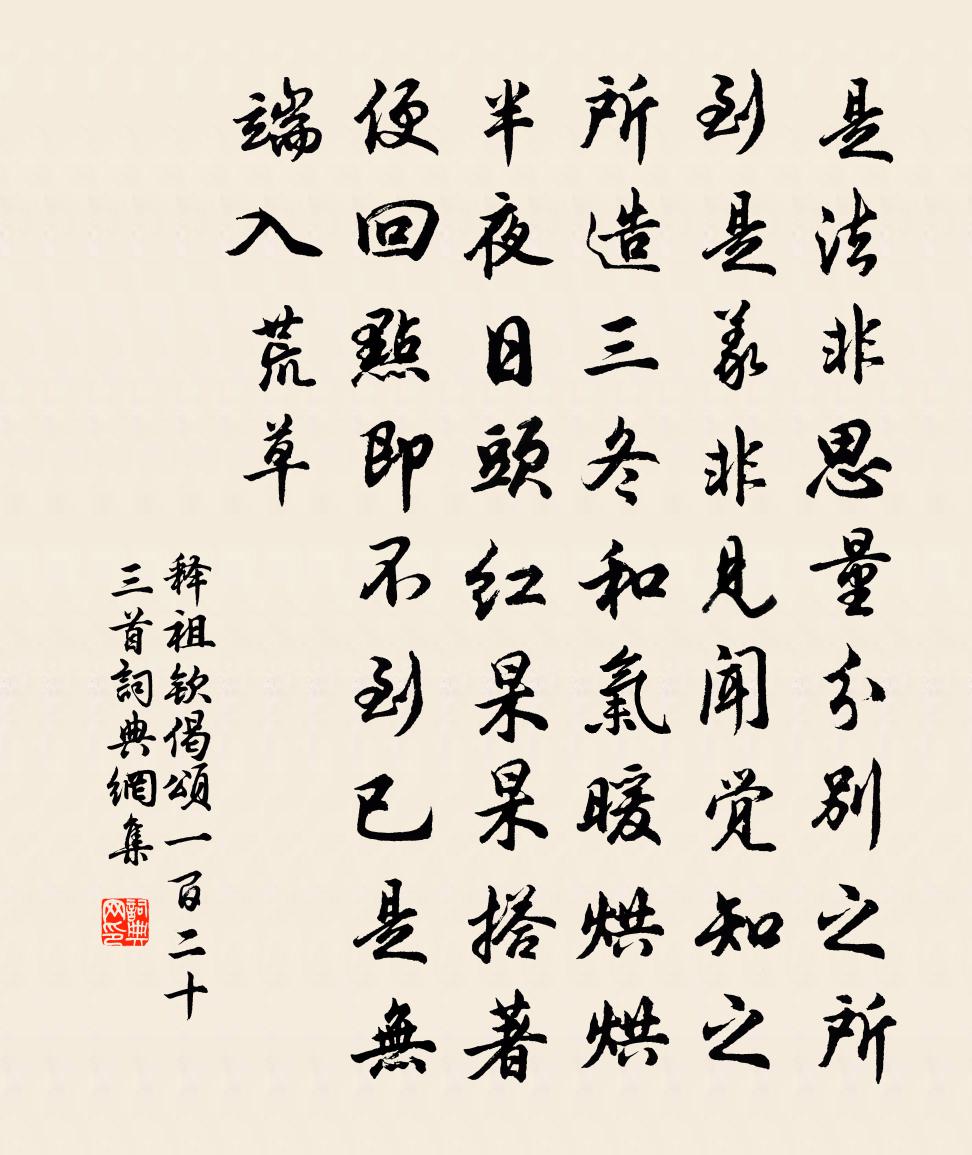 是法非思量分別之所
到是義非見聞觉知之
所造三冬和氣暖烘烘
半夜日頭红杲杲搭著
便回點即不到已是無
端入荒草
释祖钦偈頌一百二十
三首詞典網集
詞典网印